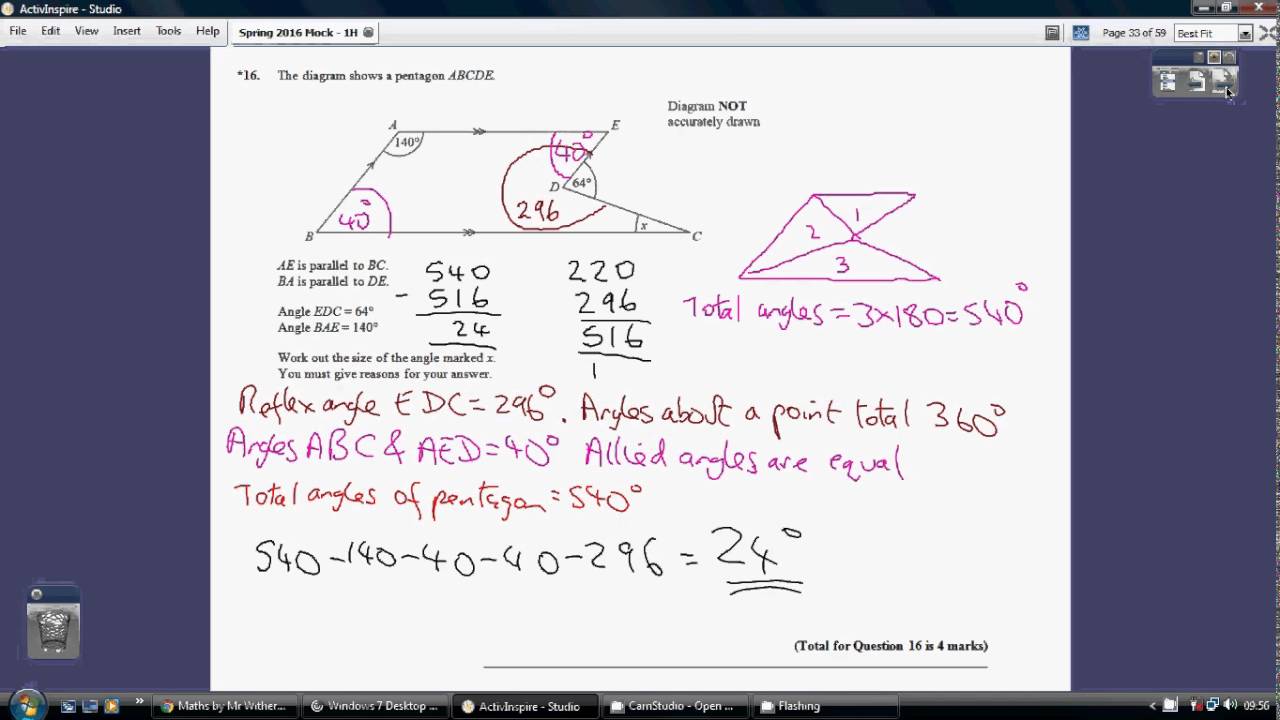 ActivInspire - Studio
File Edit View Insert Tools Help Spring 2016 Mock - 1H Page 33 of 59 Best Fit
*16. The diagram shows a pentagon ABCDE.
Diagram NOT
accurately drawn
A E
140° 40°
D 64°
40° 296 x
B C
1
2
3
AE is parallel to BC.
BA is parallel to DE.
Angle EDC = 64°
Angle BAE = 140°
Work out the size of the angle marked x.
You must give reasons for your answer.
540
- 516
24
220
296
516
1
Total angles = 3x180=540°
Reflex angle EDC = 296°. Angles about a point total 360°
Angles ABC & AED = 40° Allied angles are equal
Total angles of pentagon = 540°
540 - 140 - 40 - 40 - 296 = 24°
(Total for Question 16 is 4 marks)
» Maths by Mr Wither... Windows 7 Desktop ... ActivInspire - Studio CamStudio - Open ... Flashing < 09:56